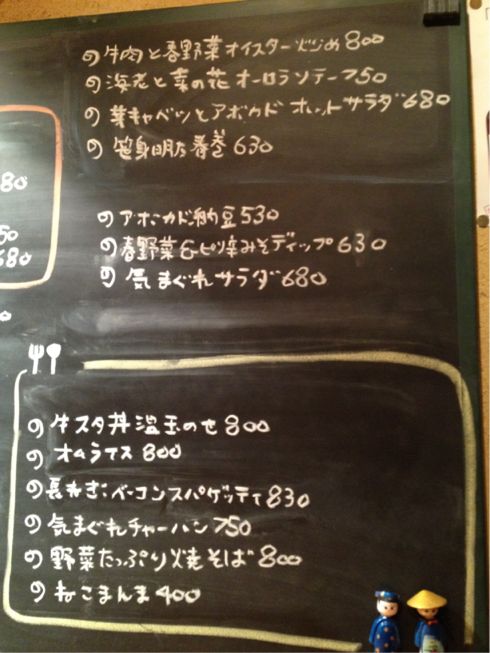 牛肉と春野菜オイスター炒め800
海老と菜の花オーロラソテー750
芽キャベツとアボカド ホットサラダ680
笹身明太春巻630
アボカド納豆530
春野菜とピリ辛みそディップ630
気まぐれサラダ680
80
50
680
0
牛スタ丼温玉のせ800
オムライス800
長ねぎとベーコンスパゲッティ830
気まぐれチャーハン750
野菜たっぷり焼そば800
ねこまんま400